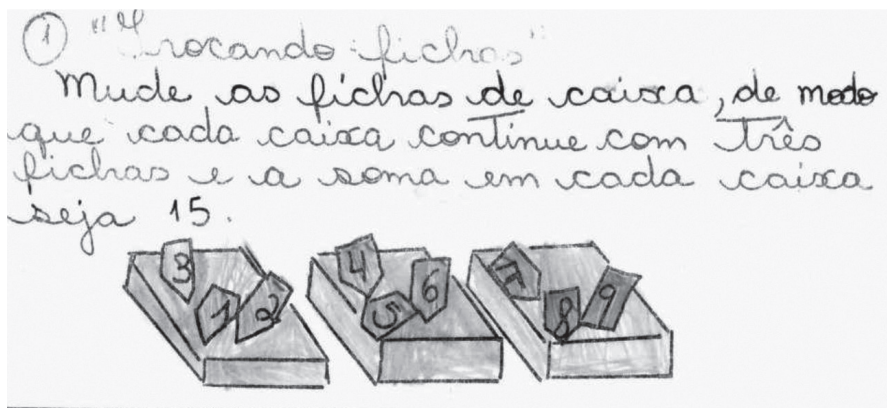 1 "Trocando fichas"
Mude as fichas de caixa, de modo
que cada caixa continue com três
fichas e a soma em cada caixa
seja 15.
3 1 2 4 5 6 7 8 9